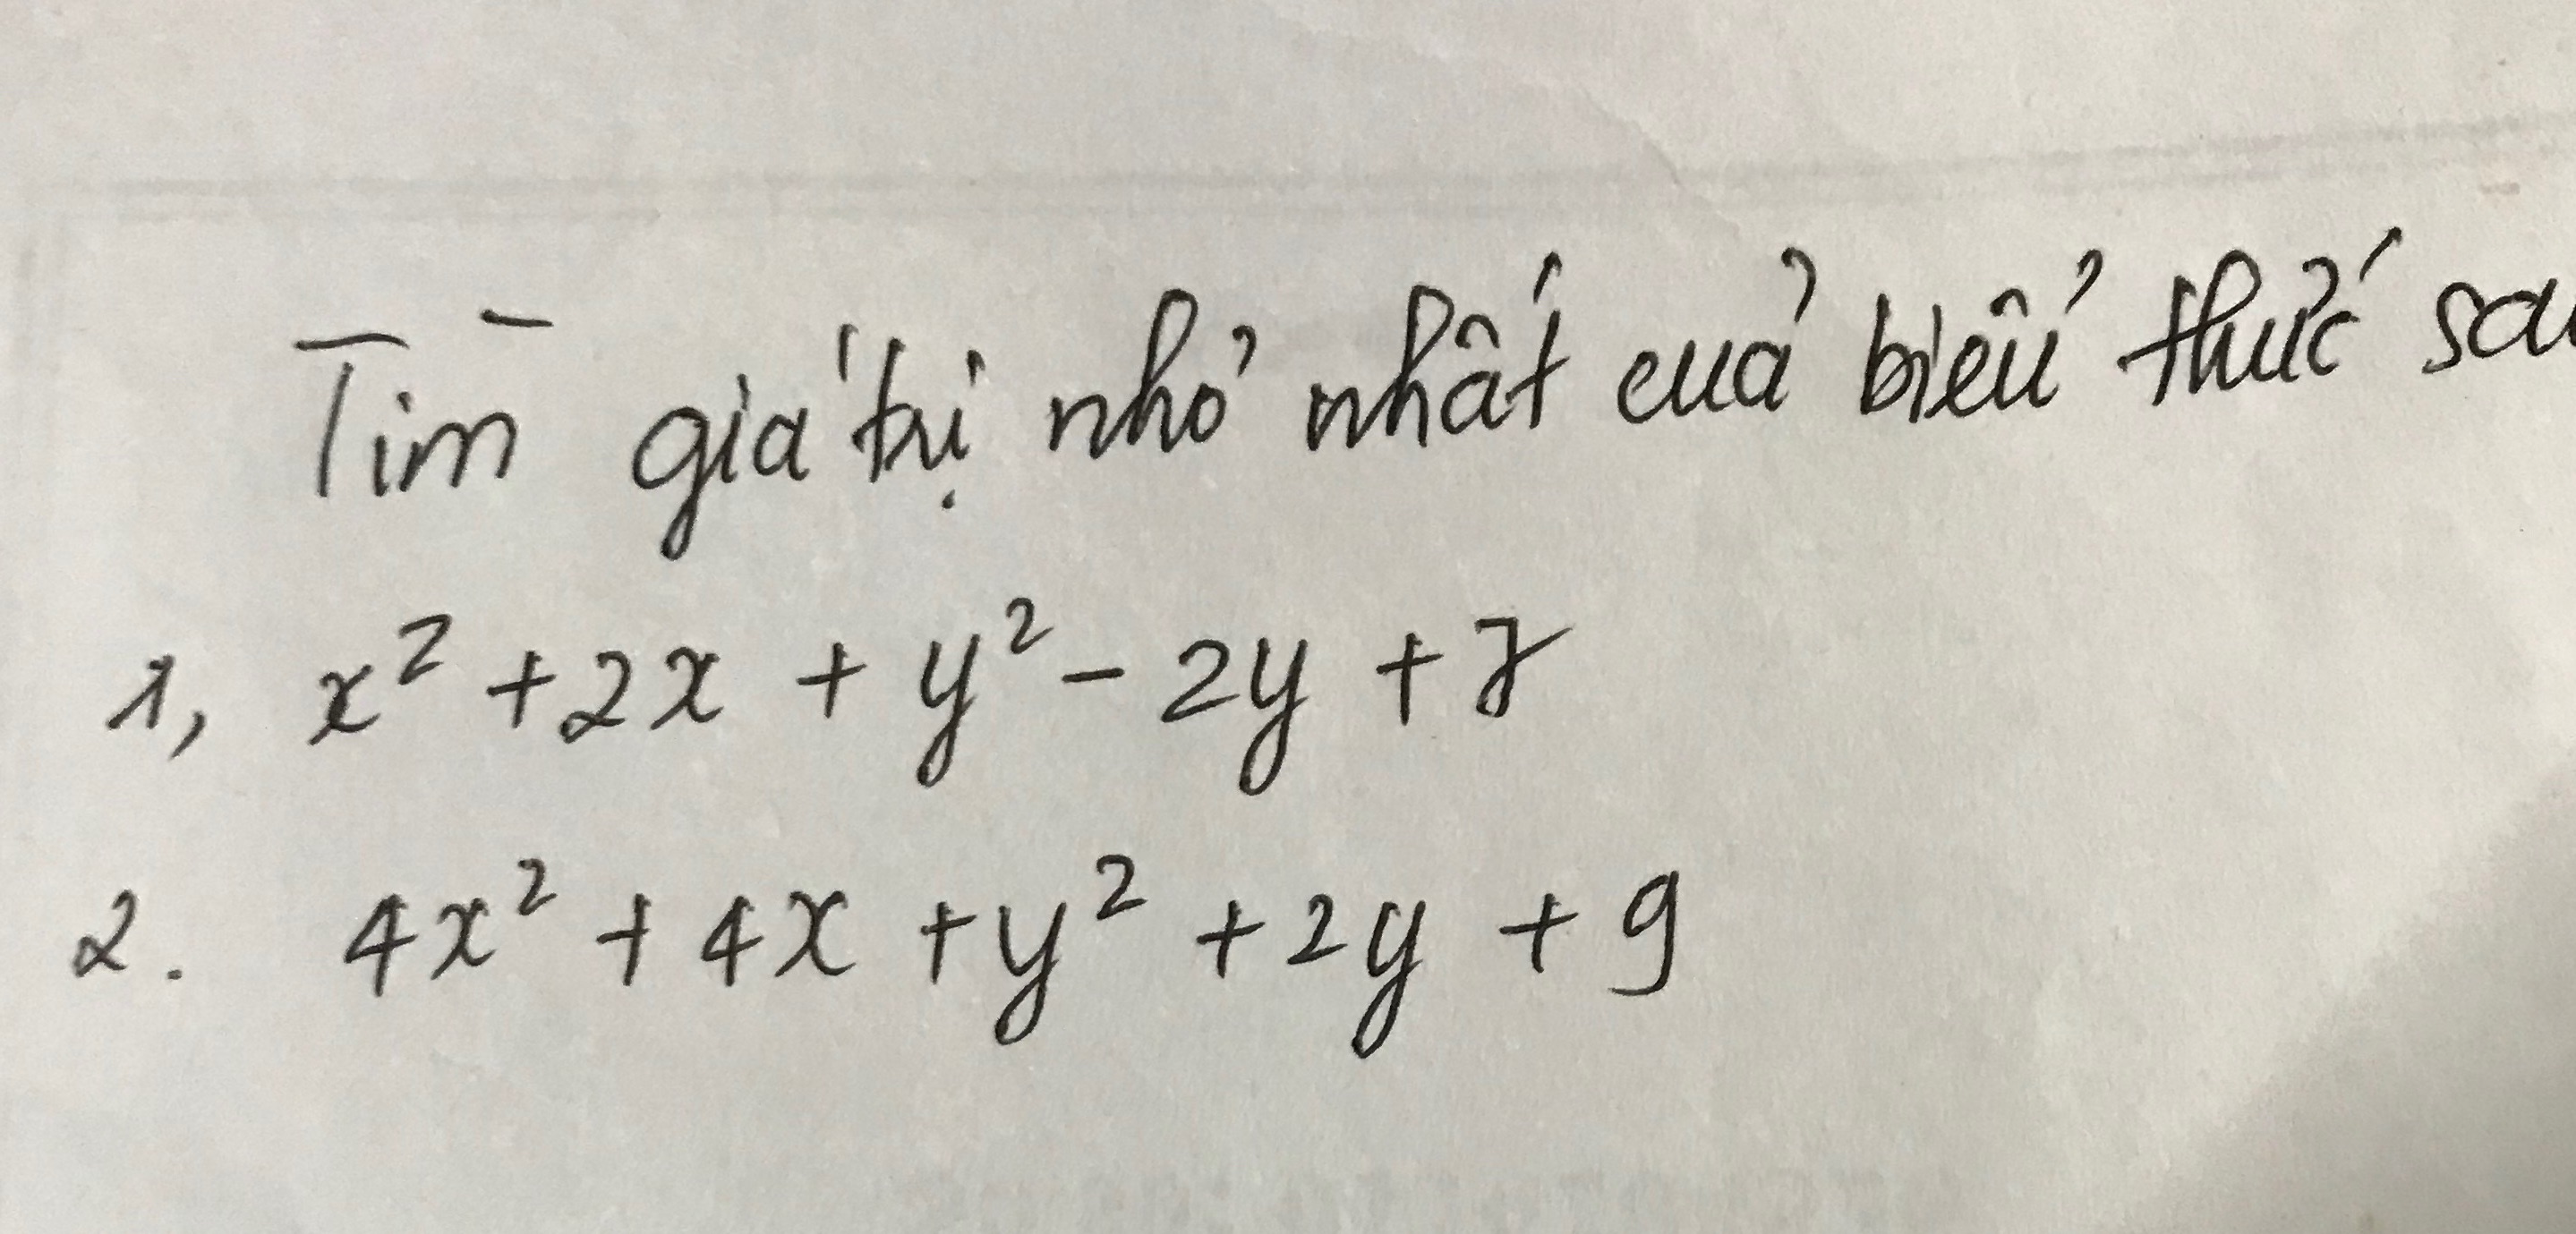 Tìm giá trị nhỏ nhất của biểu thức sau
1, x² + 2x + y² - 2y + 7
2. 4x² + 4x + y² + 2y + 9